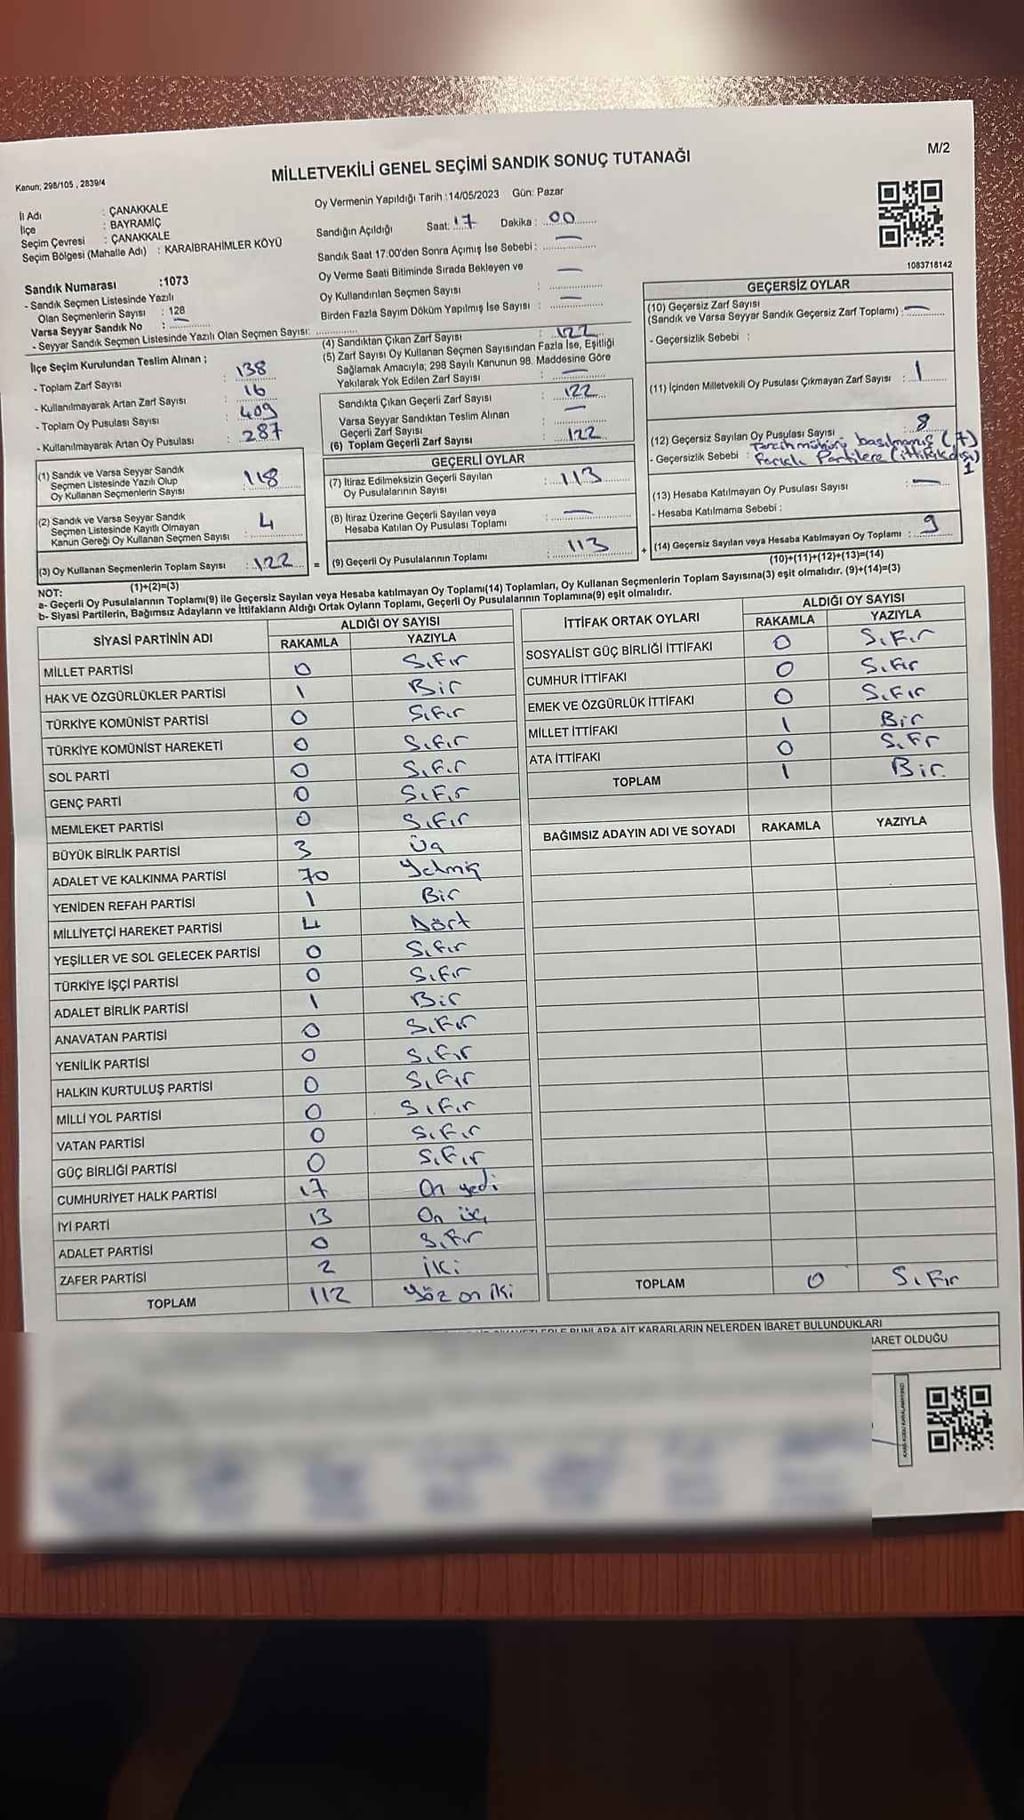 M/2
MİLLETVEKİLİ GENEL SEÇİMİ SANDIK SONUÇ TUTANAĞI
Kanun; 298/105 , 2839/4
İl Adı : ÇANAKKALE
İlçe : BAYRAMİÇ
Seçim Çevresi : ÇANAKKALE
Seçim Bölgesi (Mahalle Adı) : KARAİBRAHİMLER KÖYÜ
Oy Vermenin Yapıldığı Tarih :14/05/2023 Gün: Pazar
Sandığın Açıldığı Saat: 17 Dakika : 00
Sandık Saat 17:00'den Sonra Açımış İse Sebebi : —
Oy Verme Saati Bitiminde Sırada Bekleyen ve
Oy Kullandırılan Seçmen Sayısı : —
Birden Fazla Sayım Döküm Yapılmış İse Sayısı : —
1083718142
Sandık Numarası :1073
- Sandık Seçmen Listesinde Yazılı
Olan Seçmenlerin Sayısı : 128
Varsa Seyyar Sandık No : —
- Seyyar Sandık Seçmen Listesinde Yazılı Olan Seçmen Sayısı:
İlçe Seçim Kurulundan Teslim Alınan ;
- Toplam Zarf Sayısı : 138
- Kullanılmayarak Artan Zarf Sayısı : 16
- Toplam Oy Pusulası Sayısı : 409
- Kullanılmayarak Artan Oy Pusulası : 287
(1) Sandık ve Varsa Seyyar Sandık
Seçmen Listesinde Yazılı Olup
Oy Kullanan Seçmenlerin Sayısı 118
(2) Sandık ve Varsa Seyyar Sandık
Seçmen Listesinde Kayıtlı Olmayan
Kanun Gereği Oy Kullanan Seçmen Sayısı : 4
(3) Oy Kullanan Seçmenlerin Toplam Sayısı : 122
(1)+(2)=(3)
(4) Sandıktan Çıkan Zarf Sayısı : 122
(5) Zarf Sayısı Oy Kullanan Seçmen Sayısından Fazla İse, Eşitliği
Sağlamak Amacıyla; 298 Sayılı Kanunun 98. Maddesine Göre
Yakılarak Yok Edilen Zarf Sayısı : —
Sandıkta Çıkan Geçerli Zarf Sayısı : 122
Varsa Seyyar Sandıktan Teslim Alınan
Geçerli Zarf Sayısı : —
(6) Toplam Geçerli Zarf Sayısı : 122
GEÇERLİ OYLAR
(7) İtiraz Edilmeksizin Geçerli Sayılan
Oy Pusulalarının Sayısı : 113
(8) İtiraz Üzerine Geçerli Sayılan veya
Hesaba Katılan Oy Pusulası Toplamı : —
= (9) Geçerli Oy Pusulalarının Toplamı : 113
GEÇERSİZ OYLAR
(10) Geçersiz Zarf Sayısı
(Sandık ve Varsa Seyyar Sandık Geçersiz Zarf Toplamı) : —
- Geçersizlik Sebebi :
(11) İçinden Milletvekili Oy Pusulası Çıkmayan Zarf Sayısı : 1
(12) Geçersiz Sayılan Oy Pusulası Sayısı : 8
- Geçersizlik Sebebi : Tercih mührü basılmamış (7)
Farklı Partilere (ittifak dışı) 1
(13) Hesaba Katılmayan Oy Pusulası Sayısı : —
- Hesaba Katılmama Sebebi :
+ (14) Geçersiz Sayılan veya Hesaba Katılmayan Oy Toplamı : 9
(10)+(11)+(12)+(13)=(14)
NOT:
a- Geçerli Oy Pusulalarının Toplamı(9) ile Geçersiz Sayılan veya Hesaba katılmayan Oy Toplamı(14) Toplamları, Oy Kullanan Seçmenlerin Toplam Sayısına(3) eşit olmalıdır. (9)+(14)=(3)
b- Siyasi Partilerin, Bağımsız Adayların ve İttifakların Aldığı Ortak Oyların Toplamı, Geçerli Oy Pusulalarının Toplamına(9) eşit olmalıdır.
SİYASİ PARTİNİN ADI ALDIĞI OY SAYISI
RAKAMLA YAZIYLA
MİLLET PARTİSİ 0 Sıfır
HAK VE ÖZGÜRLÜKLER PARTİSİ 1 Bir
TÜRKİYE KOMÜNİST PARTİSİ 0 Sıfır
TÜRKİYE KOMÜNİST HAREKETİ 0 Sıfır
SOL PARTİ 0 Sıfır
GENÇ PARTİ 0 Sıfır
MEMLEKET PARTİSİ 0 Sıfır
BÜYÜK BİRLİK PARTİSİ 3 Üç
ADALET VE KALKINMA PARTİSİ 70 Yetmiş
YENİDEN REFAH PARTİSİ 1 Bir
MİLLİYETÇİ HAREKET PARTİSİ 4 Dört
YEŞİLLER VE SOL GELECEK PARTİSİ 0 Sıfır
TÜRKİYE İŞÇİ PARTİSİ 0 Sıfır
ADALET BİRLİK PARTİSİ 1 Bir
ANAVATAN PARTİSİ 0 Sıfır
YENİLİK PARTİSİ 0 Sıfır
HALKIN KURTULUŞ PARTİSİ 0 Sıfır
MİLLİ YOL PARTİSİ 0 Sıfır
VATAN PARTİSİ 0 Sıfır
GÜÇ BİRLİĞİ PARTİSİ 0 Sıfır
CUMHURİYET HALK PARTİSİ 17 On yedi
İYİ PARTİ 13 On üç
ADALET PARTİSİ 0 Sıfır
ZAFER PARTİSİ 2 İki
TOPLAM 112 Yüz on iki
İTTİFAK ORTAK OYLARI ALDIĞI OY SAYISI
RAKAMLA YAZIYLA
SOSYALİST GÜÇ BİRLİĞİ İTTİFAKI 0 Sıfır
CUMHUR İTTİFAKI 0 Sıfır
EMEK VE ÖZGÜRLÜK İTTİFAKI 0 Sıfır
MİLLET İTTİFAKI 1 Bir
ATA İTTİFAKI 0 Sıfr
TOPLAM 1 Bir
BAĞIMSIZ ADAYIN ADI VE SOYADI RAKAMLA YAZIYLA
TOPLAM 0 Sıfır
BUNLARA AİT KARARLARIN NELERDEN İBARET BULUNDUKLARI
İBARET OLDUĞU